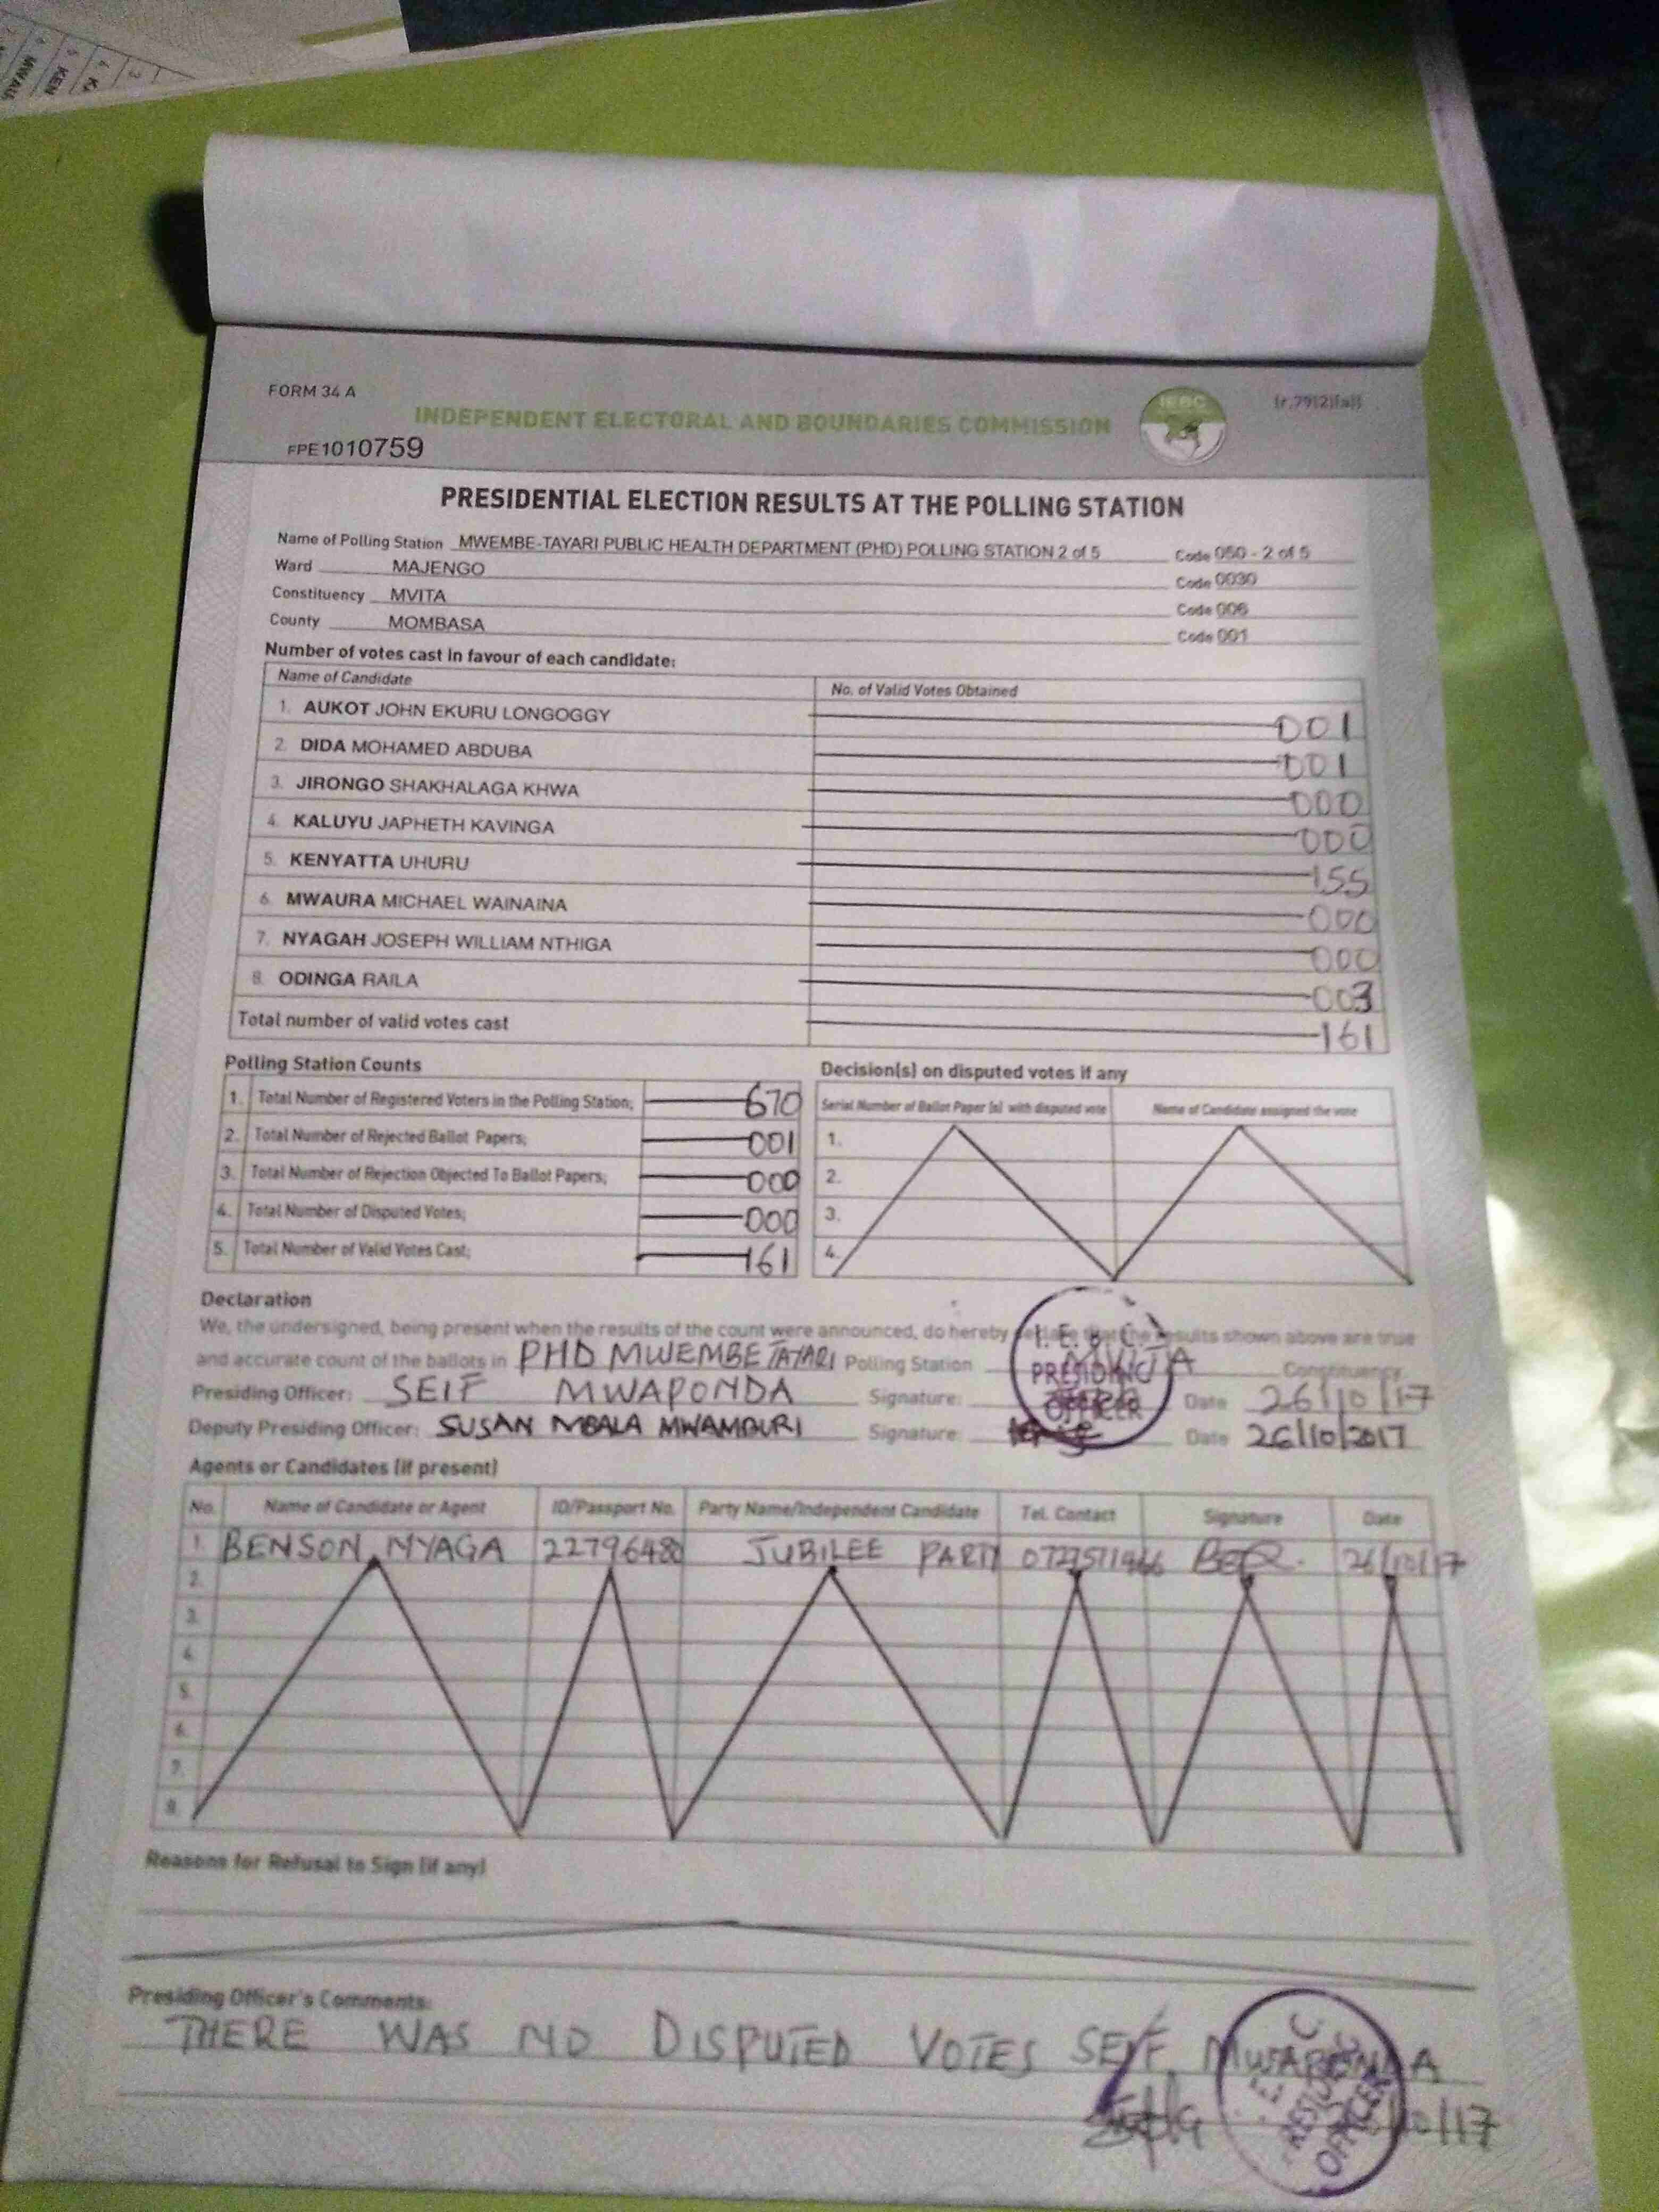 FORM 34 A
INDEPENDENT ELECTORAL AND BOUNDARIES COMMISSION
IEBC
FPE1010759
PRESIDENTIAL ELECTION RESULTS AT THE POLLING STATION
Name of Polling Station MWEMBE-TAYARI PUBLIC HEALTH DEPARTMENT (PHD) POLLING STATION 2 of 5 Code 050 - 2 of 5
Ward MAJENGO Code 0030
Constituency MVITA Code 006
County MOMBASA Code 001
Number of votes cast in favour of each candidate:
Name of Candidate No. of Valid Votes Obtained
1. AUKOT JOHN EKURU LONGOGGY 001
2. DIDA MOHAMED ABDUBA 001
3. JIRONGO SHAKHALAGA KHWA 000
4. KALUYU JAPHETH KAVINGA 000
5. KENYATTA UHURU 155
6. MWAURA MICHAEL WAINAINA 000
7. NYAGAH JOSEPH WILLIAM NTHIGA 000
8. ODINGA RAILA 003
Total number of valid votes cast 161
Polling Station Counts
1. Total Number of Registered Voters in the Polling Station; 670
2. Total Number of Rejected Ballot Papers; 001
3. Total Number of Rejection Objected To Ballot Papers; 000
4. Total Number of Disputed Votes; 000
5. Total Number of Valid Votes Cast; 161
Decision(s) on disputed votes if any
Serial Number of Ballot Paper (s) with disputed vote Name of Candidate assigned the vote
1.
2.
3.
4.
Declaration
We, the undersigned, being present when the results of the count were announced, do hereby declare that the results shown above are true
and accurate count of the ballots in PHD MWEMBE TAYARI Polling Station MVITA Constituency
Presiding Officer: SEIF MWAPONDA Signature: Date 26/10/17
Deputy Presiding Officer: SUSAN MBALA MWAMBURI Signature: Date 26/10/2017
I.E.B.C.
PRESIDING
OFFICER
Agents or Candidates (if present)
No. Name of Candidate or Agent ID/Passport No. Party Name/Independent Candidate Tel. Contact Signature Date
1 BENSON NYAGA 22796480 JUBILEE PARTY 26/10/17
2.
3.
4.
5.
6.
7.
8.
Reasons for Refusal to Sign (if any)
Presiding Officer's Comments:
THERE WAS NO DISPUTED VOTES SEIF MWAPONDA
26/10/17